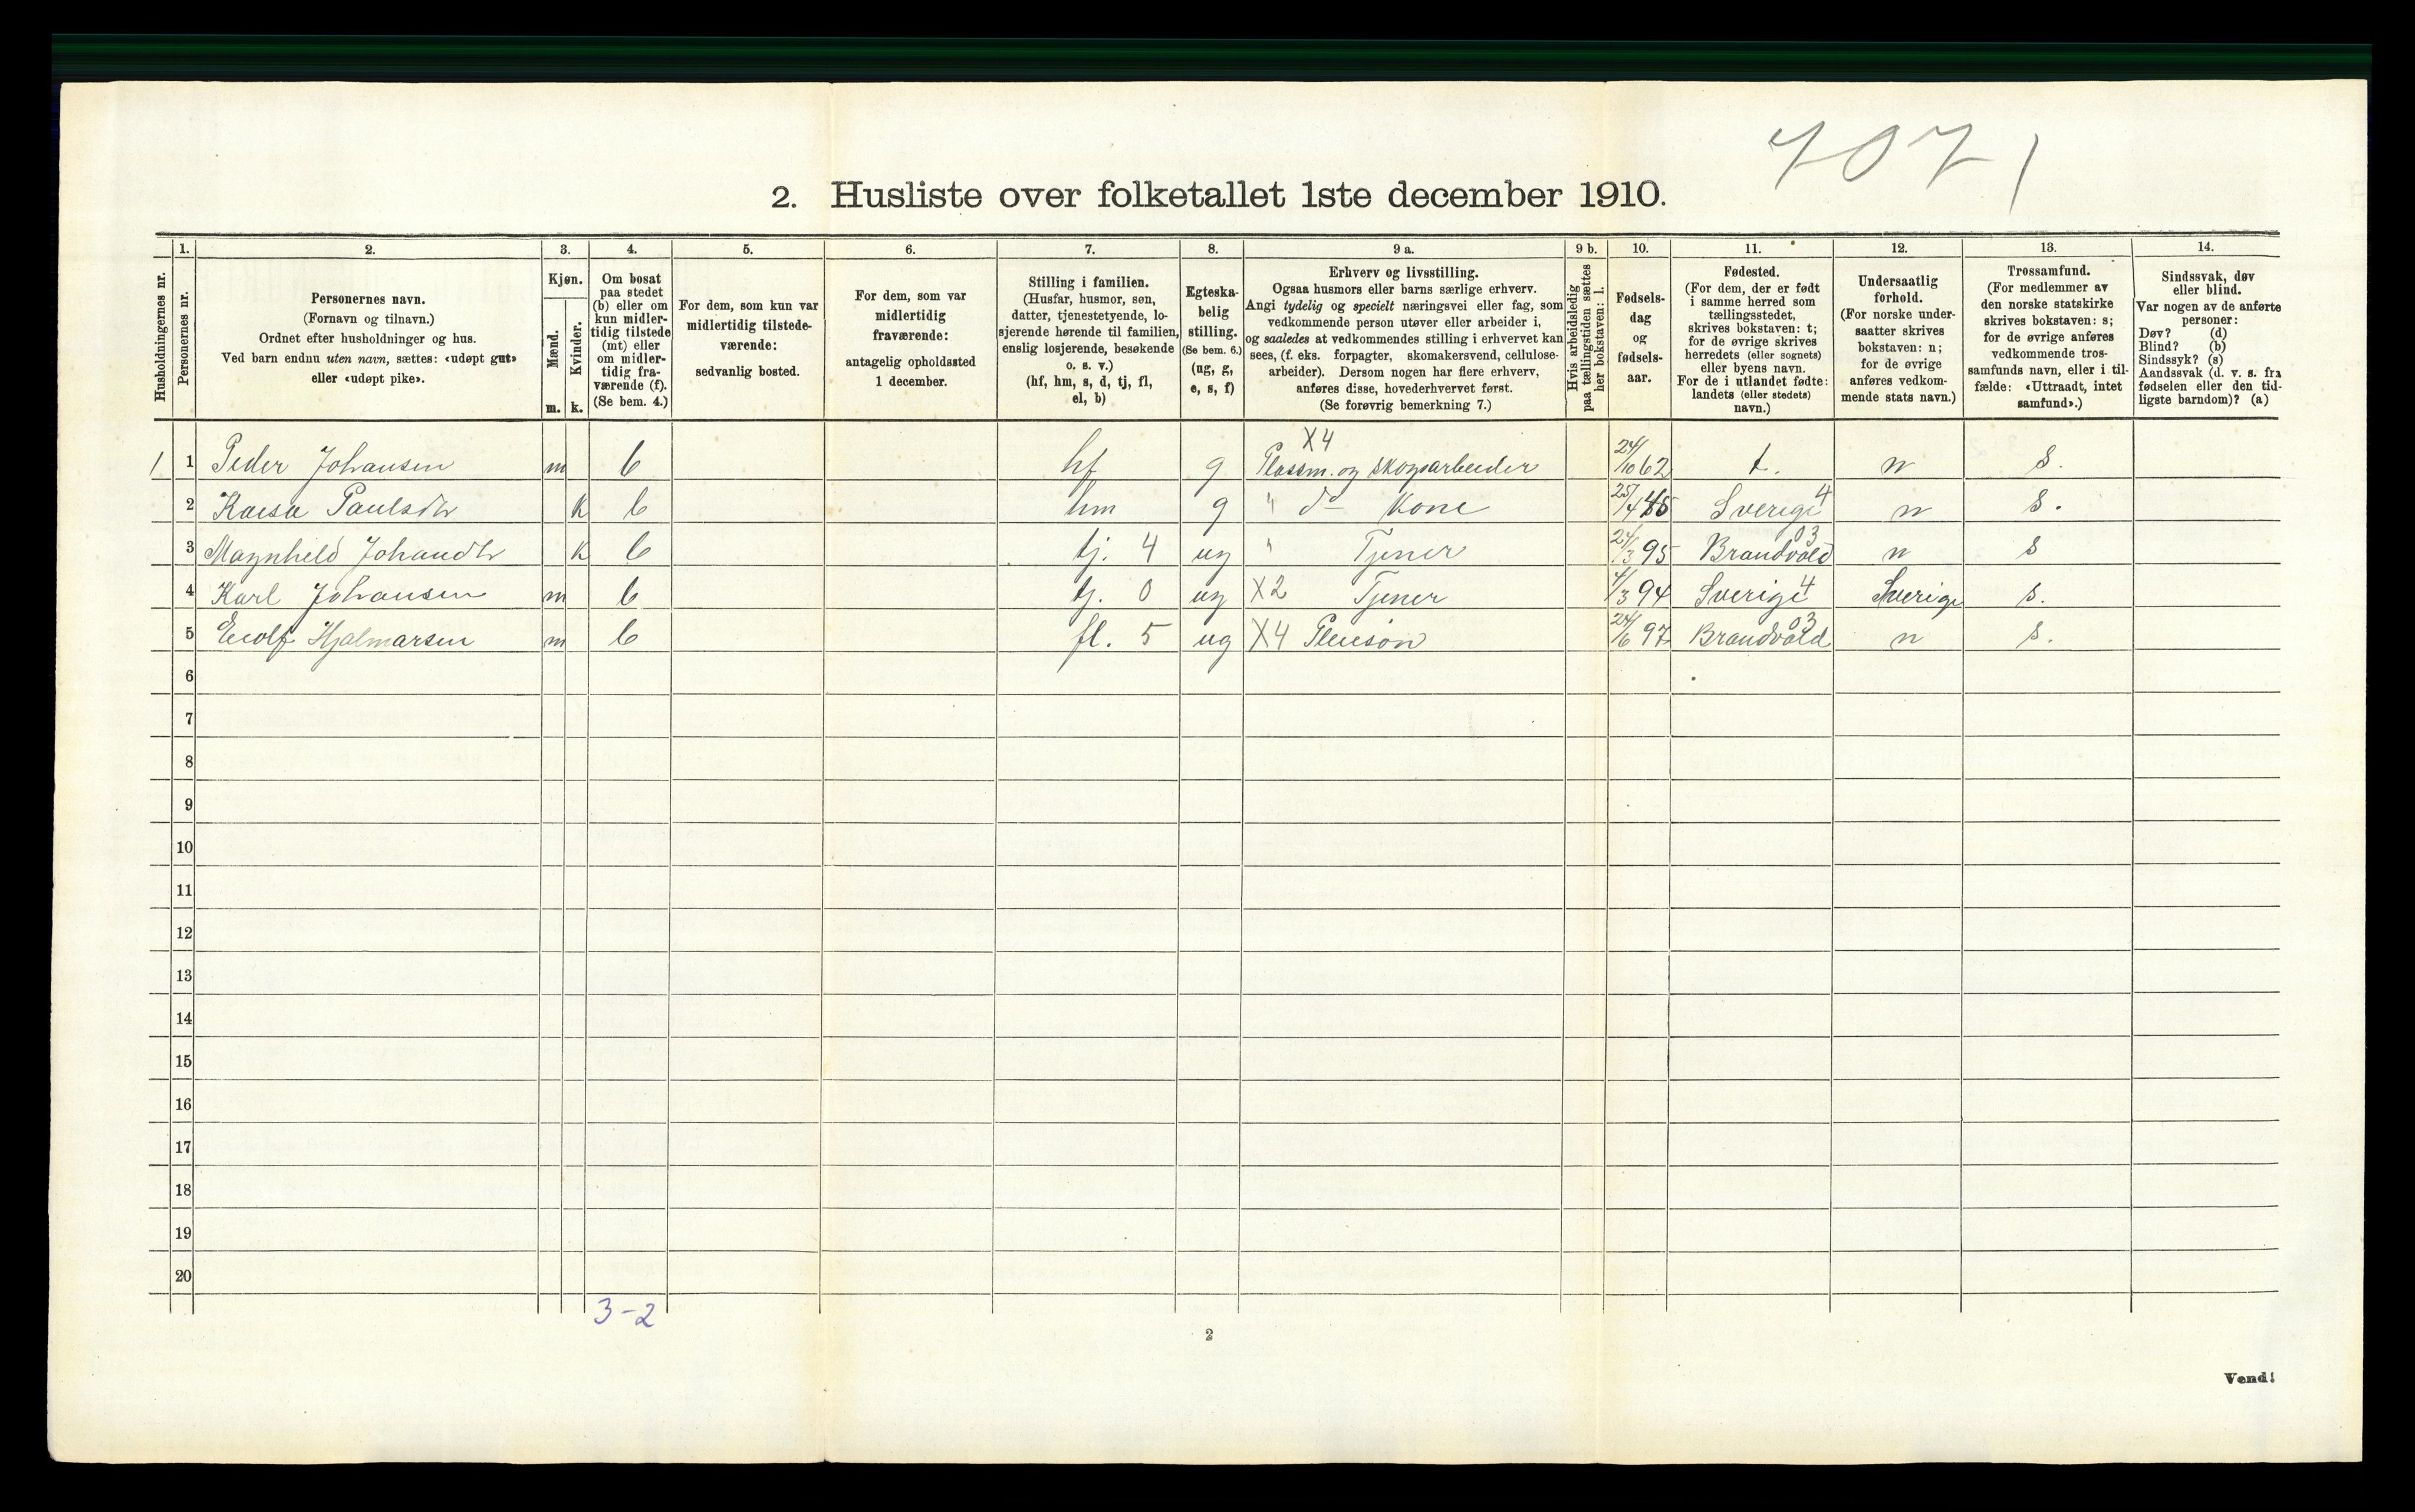 7071
2. Husliste over folketallet 1ste december 1910.
Husholdningernes nr.
1. Personernes nr.
2. Personernes navn.
(Fornavn og tilnavn.)
Ordnet efter husholdninger og hus.
Ved barn endnu uten navn, sættes: «udøpt gut»
eller «udøpt pike».
3. Kjøn.
Mænd. m.
Kvinder. k.
4. Om bosat
paa stedet
(b) eller om
kun midler-
tidig tilstede
(mt) eller
om midler-
tidig fra-
værende (f).
(Se bem. 4.)
5. For dem, som kun var
midlertidig tilstede-
værende:
sedvanlig bosted.
6. For dem, som var
midlertidig
fraværende:
antagelig opholdssted
1 december.
7. Stilling i familien.
(Husfar, husmor, søn,
datter, tjenestetyende, lo-
sjerende hørende til familien,
enslig losjerende, besøkende
o. s. v.)
(hf, hm, s, d, tj, fl,
el, b)
8. Egteska-
belig
stilling.
(Se bem. 6.)
(ug, g,
e, s, f)
9 a. Erhverv og livsstilling.
Ogsaa husmors eller barns særlige erhverv.
Angi tydelig og specielt næringsvei eller fag, som
vedkommende person utøver eller arbeider i,
og saaledes at vedkommendes stilling i erhvervet kan
sees, (f. eks. forpagter, skomakersvend, cellulose-
arbeider). Dersom nogen har flere erhverv,
anføres disse, hovederhvervet først.
(Se forøvrig bemerkning 7.)
9 b. Hvis arbeidsledig
paa tællingstiden sættes
her bokstaven: l.
10. Fødsels-
dag
og
fødsels-
aar.
11. Fødested.
(For dem, der er født
i samme herred som
tællingsstedet,
skrives bokstaven: t;
for de øvrige skrives
herredets (eller sognets)
eller byens navn.
For de i utlandet fødte:
landets (eller stedets)
navn.)
12. Undersaatlig
forhold.
(For norske under-
saatter skrives
bokstaven: n;
for de øvrige
anføres vedkom-
mende stats navn.)
13. Trossamfund.
(For medlemmer av
den norske statskirke
skrives bokstaven: s;
for de øvrige anføres
vedkommende tros-
samfunds navn, eller i til-
fælde: «Uttraadt, intet
samfund».)
14. Sindssvak, døv
eller blind.
Var nogen av de anførte
personer:
Døv? (d)
Blind? (b)
Sindssyk? (s)
Aandssvak (d. v. s. fra
fødselen eller den tid-
ligste barndom)? (a)
X4
1 1 Peder Johansen m b hf g Plassm. og skogsarbeider 24/10 62 t. n s.
2 Kaisa Paulsdtr k b hm g " do Kone 25/4 Sverige 4 n s.
3 Magnhild Johansdtr k b tj. 4 ug " Tjener 24/3 95 Brandvold 03 n s
4 Karl Johansen m b tj. 0 ug X2 Tjener 4/3 94 Sverige 4 Sverige s.
5 Hjalmarsen m b fl. 5 ug X4 Pleiesøn 24/6 97 Brandvold 03 n s.
6
7
8
9
10
11
12
13
14
15
16
17
18
19
20
3-2
2
Vend!